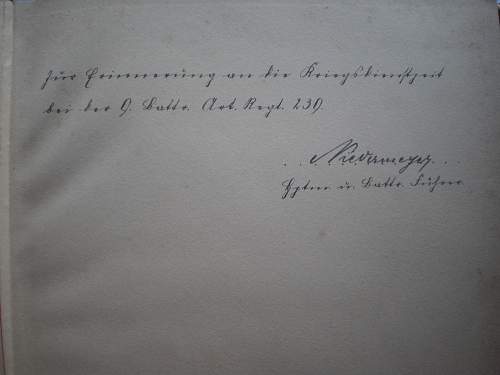 Zur Erinnerung an die Kriegsdienstzeit
bei der 9. Battr. Art. Regt. 239.
Niedermeyer
Hptm u. Battr. Führer